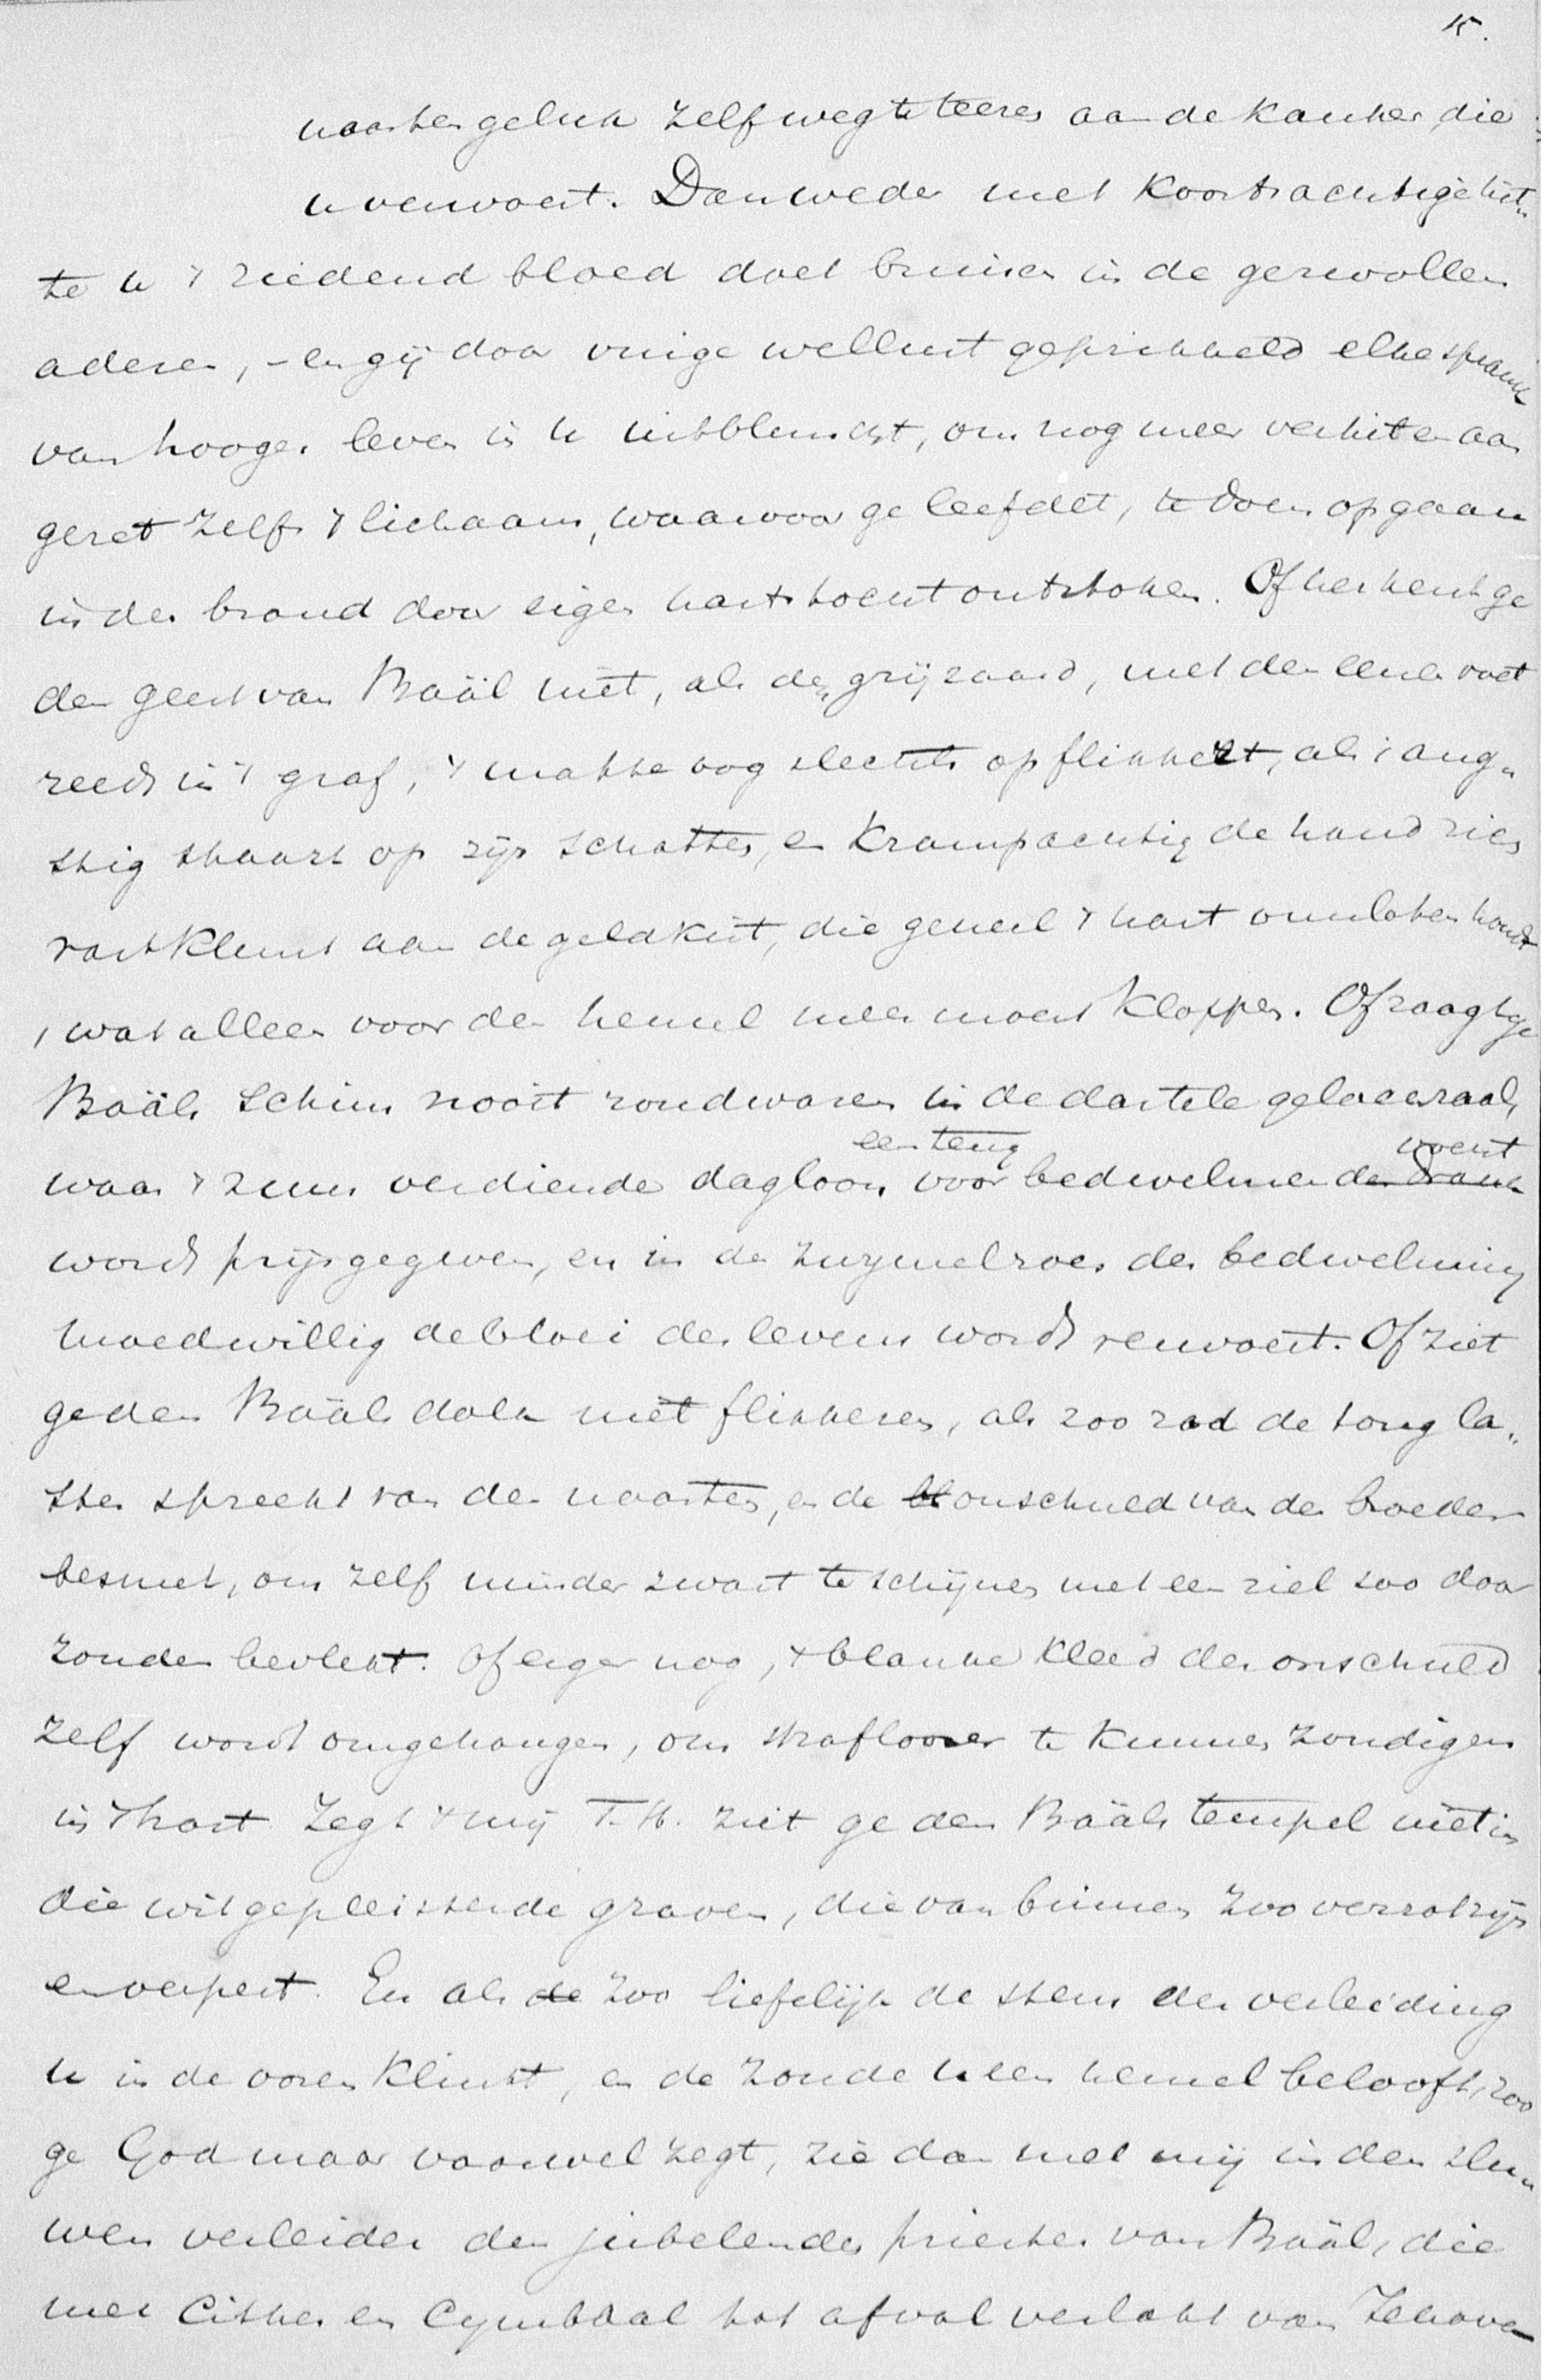 15.
naasten geluk zelf weg te teeren aan de kanker die
u verwoest. Dan weder met koortsachtige hit„
te u 't ziedend bloed doet bruisen in de gezwollen
aderen, – en gij door vurige wellust geprikkeld elke sprank
van hooger leven in u uitbluscht, om nog meer verhit en aan
gezet zelfs 't lichaam, waarvoor ge leefdet, te doen opgaan
in den brand door eigen hartstocht ontstoken. Of herkent ge
den geest van Baäl niet, als den grijzaard, met den eenen voet
reeds in 't graf, 't matte oog slechts opflikkert, als i ang„
stig staart op zijn schatten, en krampachtig de hand zich
vastklemt aan de geldkist, die geheel 't hart omsloten houdt
, wat alleen voor den hemel meer moest kloppen. Of zaagt ge
Baäls schim nooit rondwaren in de dartele gelagzaal,
een teug woest
waar 't zuur verdiende dagloon voor bedwelmenden drank
wordt prijsgegeven, en in de zwijmelroes der bedwelming
moedwillig de bloei des levens wordt verwoest. Of ziet
ge den Baäls dolk niet flikkeren, als zoo rad de tong la„
ster spreekt van den naasten, en de bl onschuld van den broeder
besmet, om zelf minder zwart te schijnen met een ziel zoo door
zonden bevlekt. Of erger nog, 't blanke kleed der onschuld
zelf wordt omgehangen, om straffloozer te kunnen zondigen
in 't hart. Zegt 't mij T. H. ziet ge den Baäls tempel niet in
die witgepleisterde graven, die van binnen zoo verrot zijn
en verpest. En als de zoo liefelijk de stem der verleiding
u in de ooren klinkt, en de zonde u een hemel belooft, zoo
ge God maar vaarwel zegt, zie dan met mij in den slu„
wen verleider den jubelenden priester van Baäl, die
met Cither en Cymbaal tot afval verlokt van Jehova